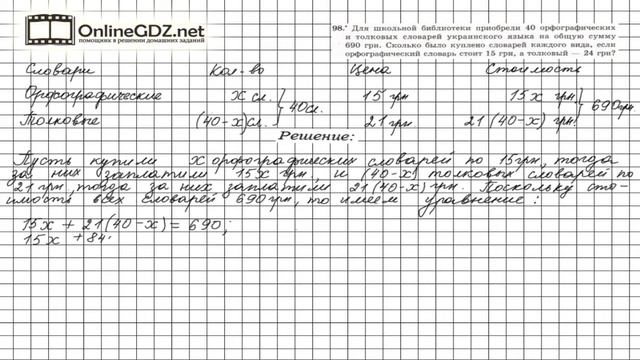 OnlineGDZ.net
помощник в решении домашних заданий
98.* Для школьной библиотеки приобрели 40 орфографических
и толковых словарей украинского языка на общую сумму
690 грн. Сколько было куплено словарей каждого вида, если
орфографический словарь стоит 15 грн, а толковый — 24 грн?
Словари Кол-во Цена Стоимость
Орфографические x сл. 15 грн 15x грн.
40сл. 690 грн
Толковые (40-x)сл. 21 грн 21(40-x) грн.
Решение:
Пусть купили x орфографических словарей по 15грн, тогда
за них заплатили 15x грн, и (40-x) толковых словарей по
21 грн, тогда за них заплатили 21(40-x) грн. Поскольку сто-
имость всех словарей 690грн, то имеем уравнение:
15x + 21(40-x) = 690;
15x + 84